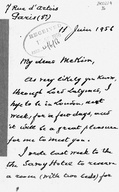 7 Rue d'Artois
Paris (8e)
11 June 1956
My dear McKim,
As very likely you know,
through Lord Salymas, I
hope to be in London next
week for a few days, and
it will be a great pleasure
for me to meet you.
I wrote last week to the
the Savoy Hotel to reserve
a room (with two beds) for